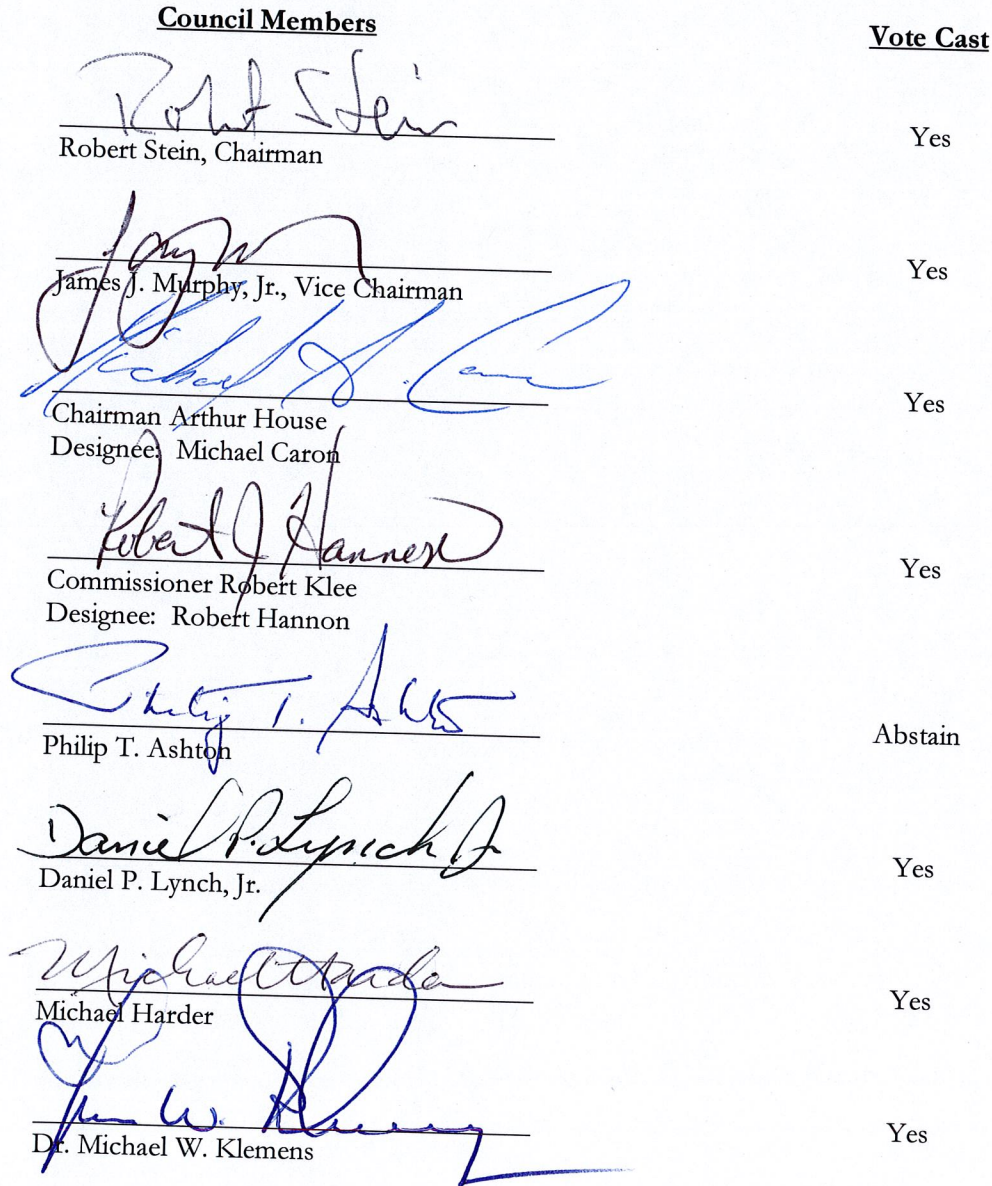 Council Members Vote Cast
Robert Stein
Robert Stein, Chairman Yes
James J. Murphy, Jr., Vice Chairman Yes
Michael A. Caron
Chairman Arthur House Yes
Designee: Michael Caron
Robert J Hannon
Commissioner Robert Klee Yes
Designee: Robert Hannon
Philip T. Ashton
Philip T. Ashton Abstain
Daniel P. Lynch Jr
Daniel P. Lynch, Jr. Yes
Michael Harder
Michael Harder Yes
W. Klemens
Dr. Michael W. Klemens Yes